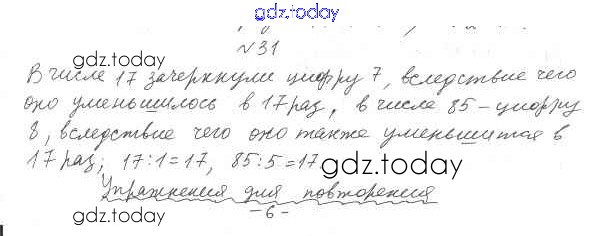 gdz.today
№31
gdz.today
В числе 17 зачеркнули цифру 7, вследствие чего
оно уменьшилось в 17 раз, в числе 85 – цифру
8, вследствие чего оно также уменьшится в
17 раз; 17:1=17, 85:5=17.
gdz.today
Упражнения для повторения
– 6 –
gdz.today